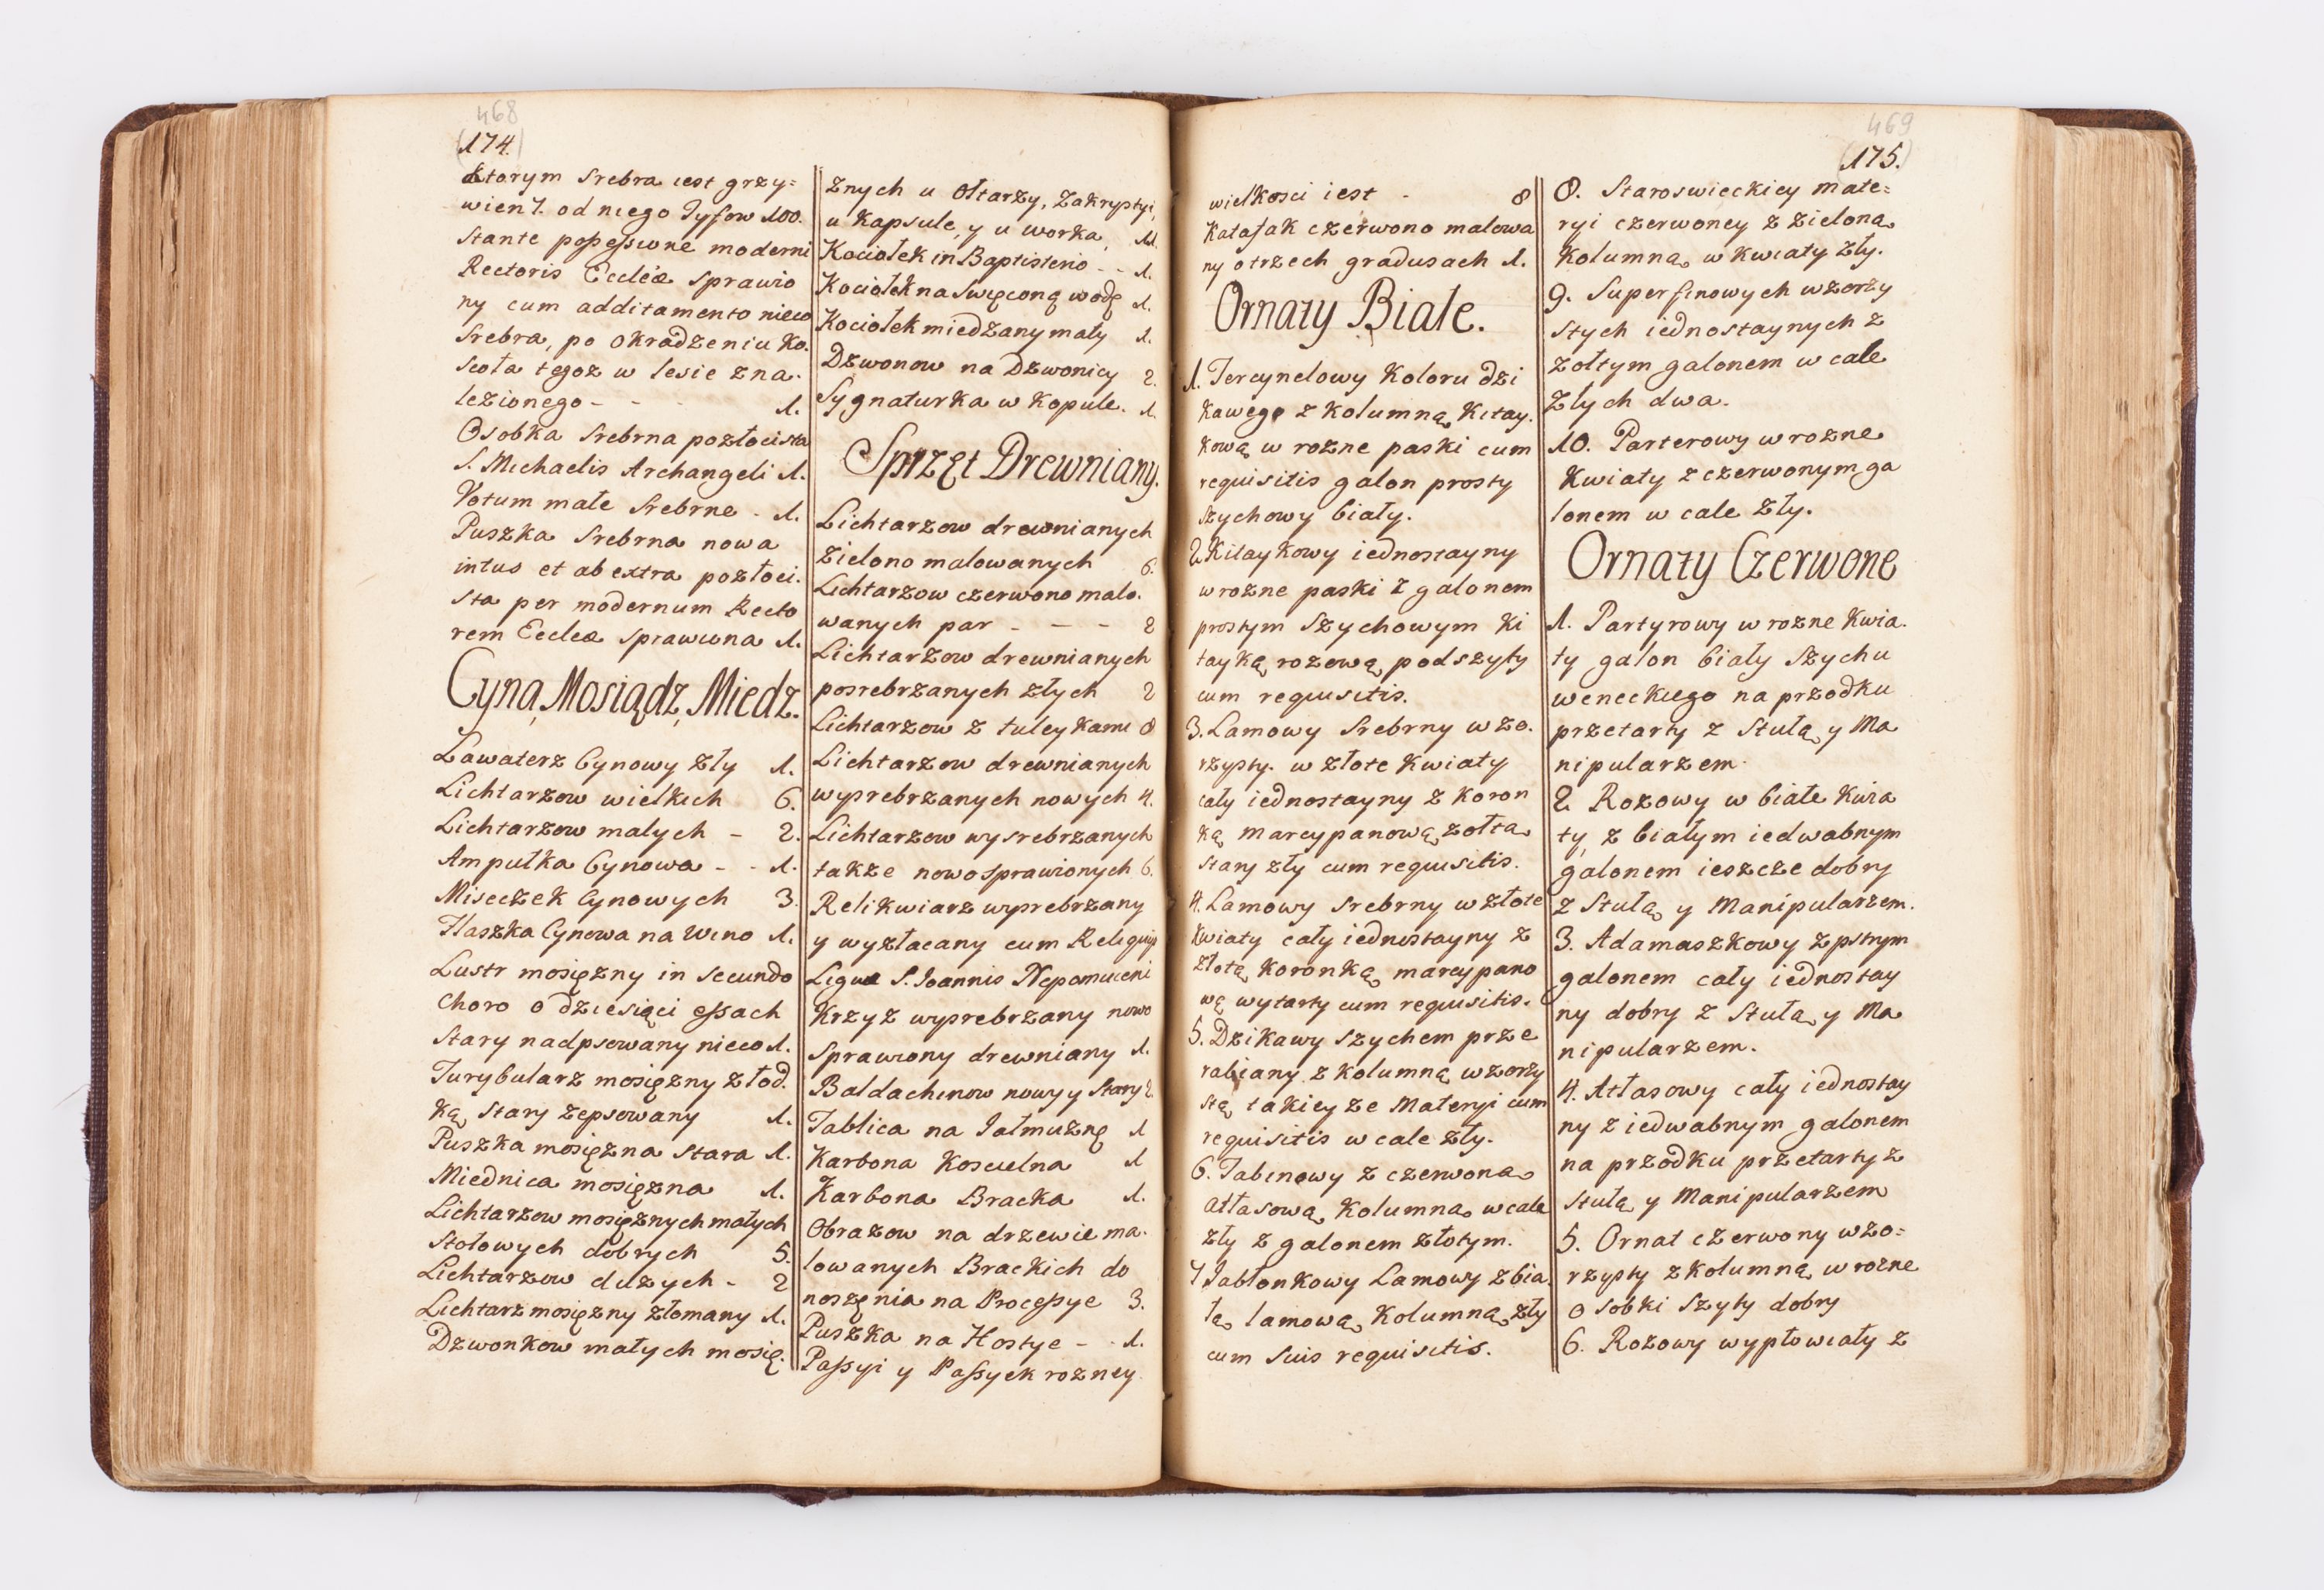 468
(174.)
ktorym Srebra iest grzy=
wien 7. od niego Tyffow 100.
Stante possessione moderni
Rectoris Eccleæ sprawio
ny cum additamento nieco
Srebra, po okradzeniu Ko.
scoła tegoz w lesie zna.
lezionego - - - 1.
Osobka Srebrna pozłocista
S. Michaelis Archangeli 1.
Votum małe Srebrne - 1.
Puszka Srebrna nowa
intus et ab extra pozłoci.
sta per modernum Recto
rem Eccleæ sprawiona 1.
Cyna, Mosiądz, Miedz.
Lawaterz Cynowy zły 1.
Lichtarzow wielkich 6.
Lichtarzow malych - 2.
Ampułka Cynowa - - 1.
Miseczek Cynowych 3.
Flaszka Cynowa na Wino 1.
Lustr mosięzny in secundo
Choro o dziesiąci essach
Stary nadpsowany nieco 1.
Turybularz mosięzny z łod.
ką stary zepsowany 1.
Puszka mosięzna stara 1.
Miednica mosięzna 1.
Lichtarzow mosięznych małych
Stołowych dobrych 5.
Lichtarzow duzych - 2
Lichtarz mosięzny złomany 1.
Dzwonkow małych mosię.
znych u Ołtarzy, Zakrystyi,
u Kapsule, y u worka, 11.
Kociołek in Baptisterio - - 1.
Kociołek na Swięconą wodę 1.
Kociołek miedzany mały 1.
Dzwonow na Dzwonicy 2.
Sygnaturka w Kopule. 1.
Sprzęt Drewniany.
Lichtarzow drewnianych
zielono malowanych 6.
Lichtarzow czerwono malo.
wanych par - - - 2
Lichtarzow drewnianych
posrebrzanych złych 2
Lichtarzow z tuleykami 8
Lichtarzow drewnianych
wysrebrzanych nowych 4.
Lichtarzow wysrebrzanych
takze nowo sprawionych 6.
Relikwiarz wysrebrzany
y wyzłacany cum Reliquijs
Ligua S. Ioannis Nepomuceni
Krzyz wysrebrzany nowo
sprawiony drewniany 1.
Baldachinow nowy y Stary 2.
Tablica na Jałmuznę 1
Karbona Koscielna 1
Karbona Bracka 1.
Obrazow na drzewie ma.
lowanych Brackich do
noszęnia na Processye 3.
Puszka na Hostye - - 1.
Passyi y Passyek rozney
469
(175.)
wielkosci iest - 8
Katafak czerwono malowa
ny o trzech gradusach 1.
Ornaty Białe.
1. Tercynelowy Koloru dzi
kawego z kolumną Kitay.
kową w rozne paski cum
requisitis galon prosty
szychowy biały.
2. Kitaykowy iednostayny
w rozne paski z galonem
prostym Szychowym Ki
tayką rozową podszyty
cum requisitis.
3. Lamowy Srebrny wzo.
rzysty. w złote Kwiaty
cały iednostayny z koron
ką marcypanową zołtą
stary zły cum requisitis.
4. Lamowy srebrny w złote
Kwiaty cały iednostayny z
złotą Koronką marcypano
wą wytarty cum requisitis.
5. Dzikawy szychem prze
rabiany z kolumną wzorzy
stą takiey ze Materyi cum
requisitis w cale zły.
6. Tabinowy z czerwoną
atłasową Kolumną w cale
zły z galonem złotym.
7 Jabłonkowy Lamowy z bia.
łą lamową Kolumną zły
cum suis requisitis.
8. Staroswieckiey mate=
ryi czerwoney z zieloną
Kolumną w kwiaty zły.
9. Superfinowych wzorzy
stych iednostaynych z
zołtym galonem w cale
złych dwa.
10. Parterowy w rozne
Kwiaty z czerwonym ga
lonem w cale zły.
Ornaty Czerwone
1. Partyrowy w rozne Kwia.
ty galon biały Szychu
weneckiego na przodku
przetarty z Stułą y Ma
nipularzem.
2. Rozowy w białe Kwia
ty, z białym iedwabnym
galonem ieszcze dobry
z Stułą y Manipularzem.
3. Adamaszkowy z pstrym
galonem cały iednostay
ny dobry z Stułą y Ma
nipularzem.
4. Atłasowy cały iednostay
ny z iedwabnym galonem
na przodku przetarty z
stułą y Manipularzem
5. Ornat czerwony wzo=
rzysty z kolumną w rozne
osobki Szyty dobry
6. Rozowy wypłowiały z